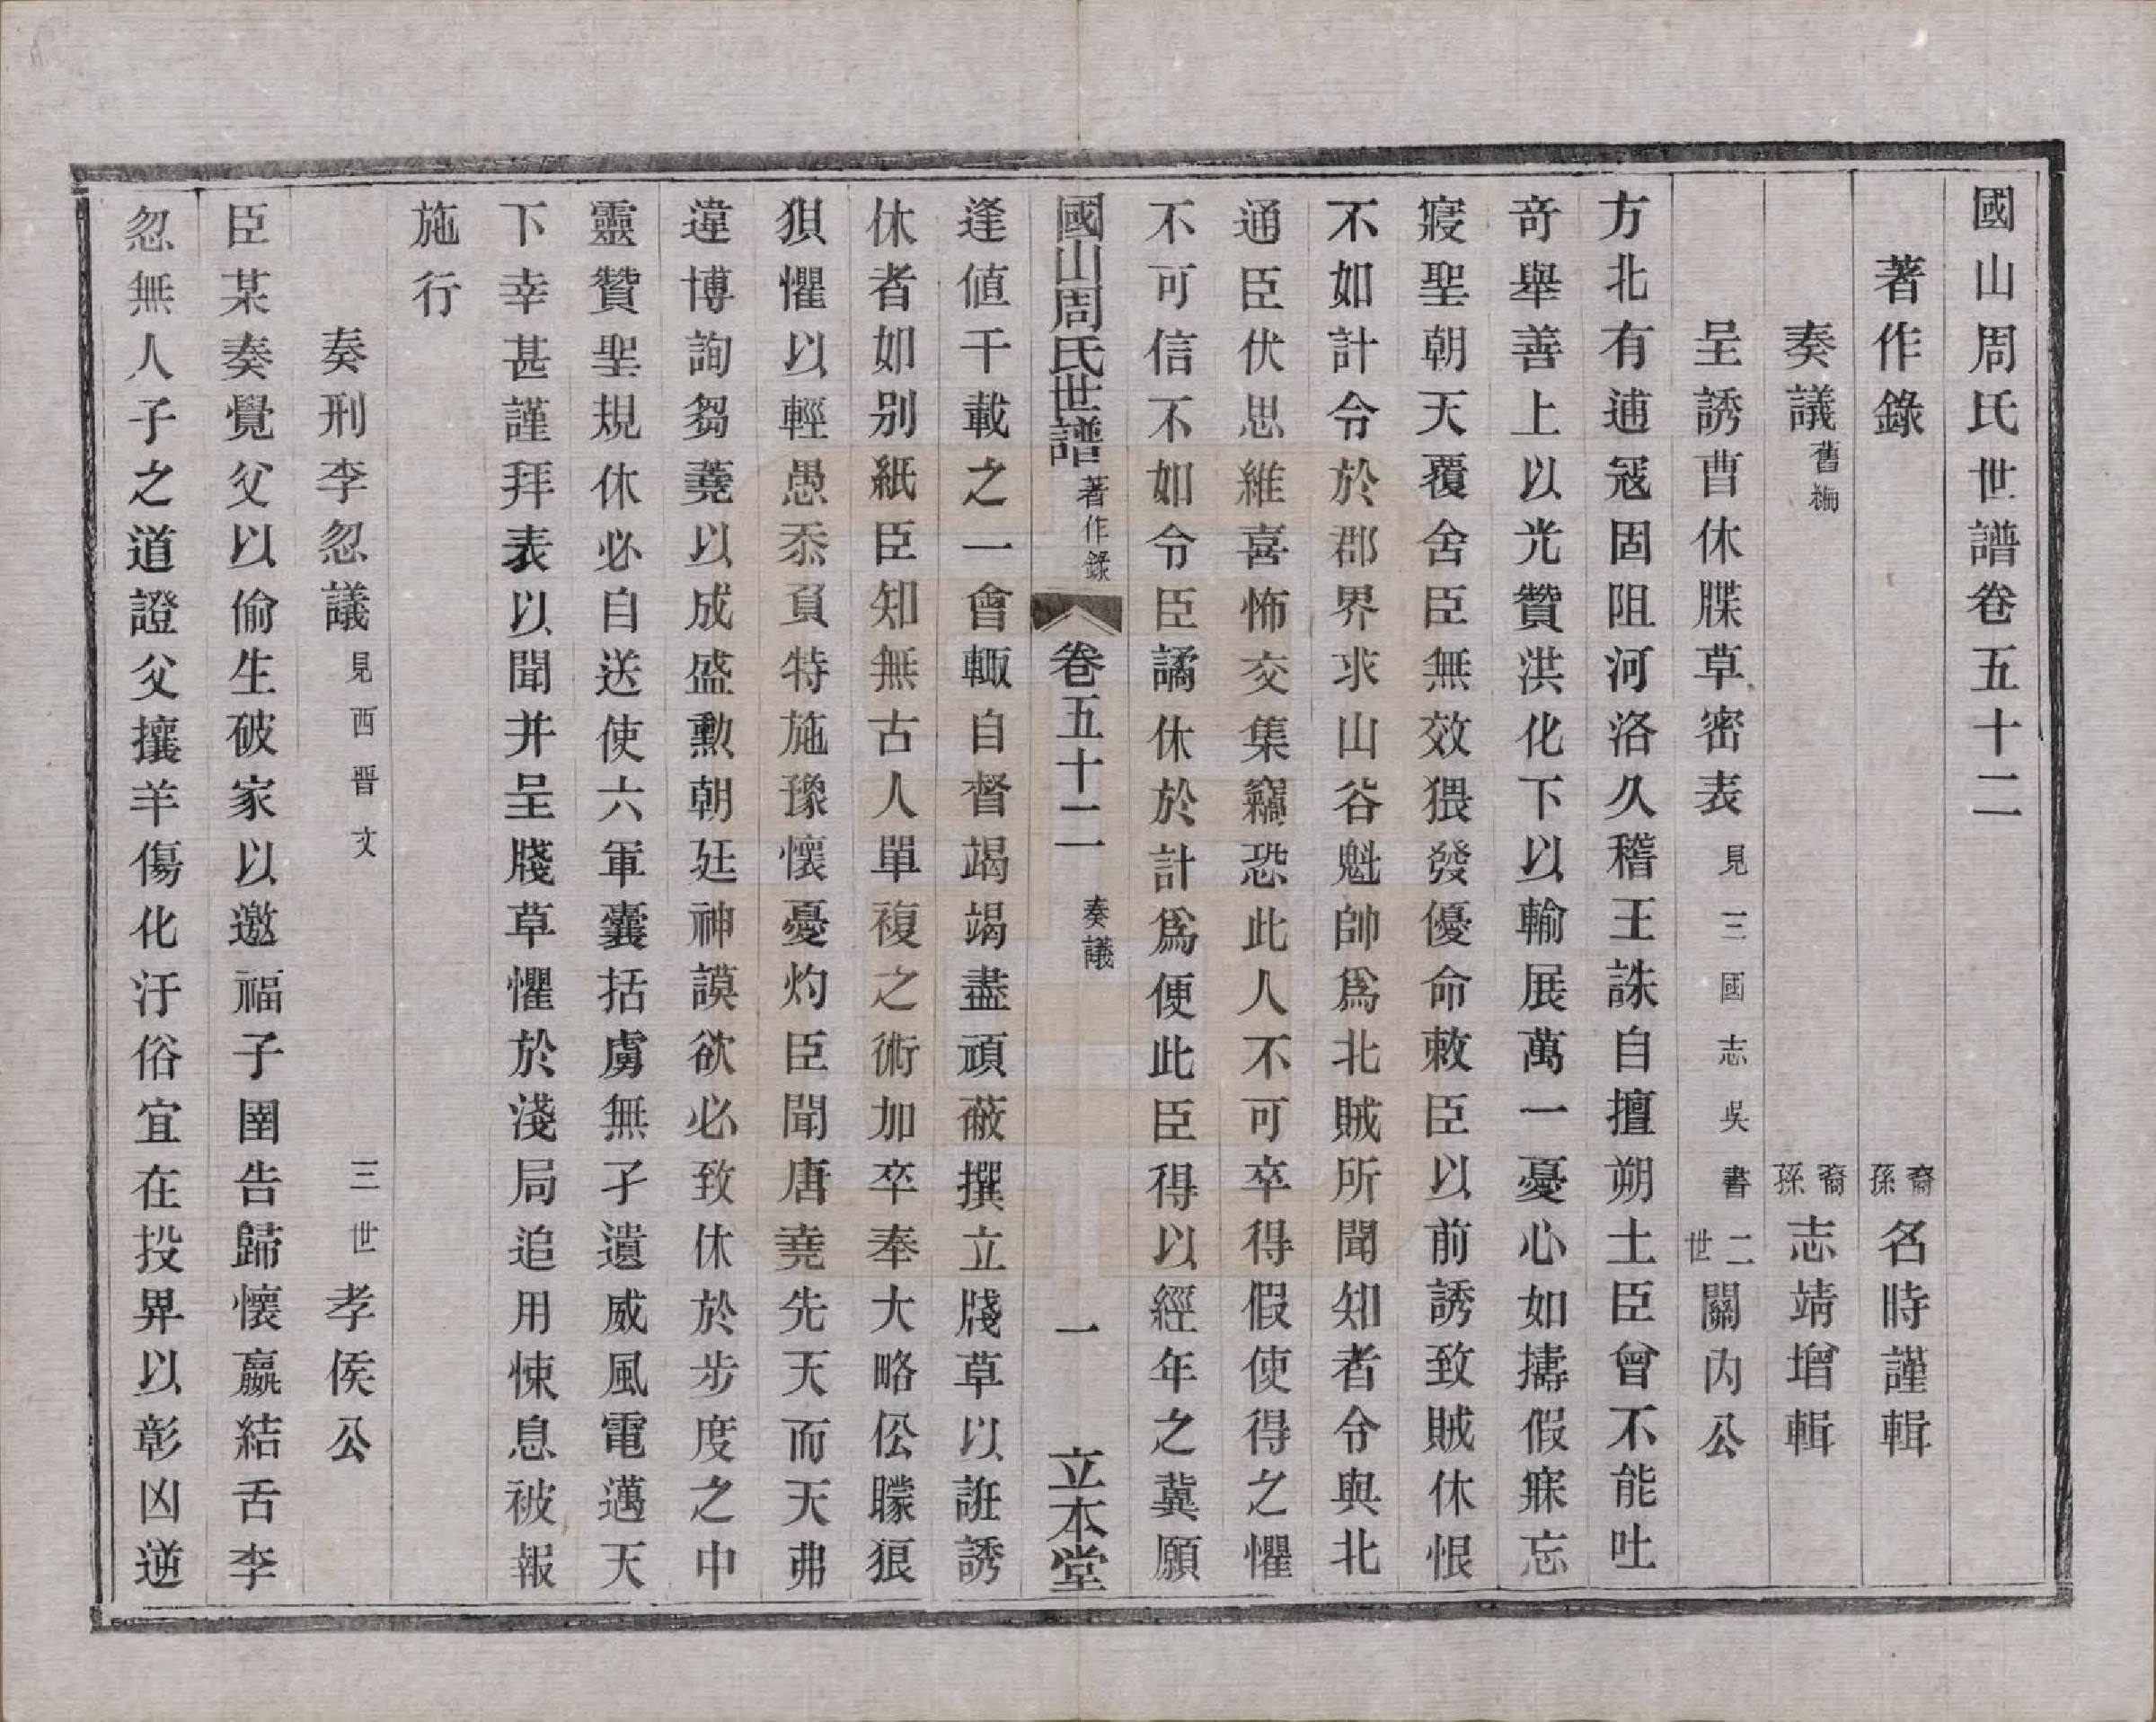 國山周氏世譜卷五十二
著作錄　裔孫名時謹輯
奏議舊編　裔孫志靖增輯
呈誘曹休牒草密表見三國志吳書　二世關內公
方北有逋寇固阻河洛久稽王誅自擅朔土臣曾不能吐
奇舉善上以光贊洪化下以輸展萬一憂心如擣假寐忘
寢聖朝天覆舍臣無效猥發優命敕臣以前誘致賊休恨
不如計令於郡界求山谷魁帥爲北賊所聞知者令與北
通臣伏思維喜怖交集竊恐此人不可卒得假使得之懼
不可信不如令臣譎休於計爲便此臣得以經年之冀願
國山周氏世譜　著作錄　卷五十二　奏議　一　立本堂
逢值千載之一會輒自督竭竭盡頑蔽撰立牋草以誑誘
休者如别紙臣知無古人單複之術加卒奉大略伀矇狼
狽懼以輕愚忝負特施豫懷憂灼臣聞唐堯先天而天弗
違博詢芻蕘以成盛勲朝廷神謨欲必致休於步度之中
靈贊聖規休必自送使六軍囊括虜無孑遺威風電邁天
下幸甚謹拜表以聞并呈牋草懼於淺局追用悚息被報
施行
奏刑李忽議見西晋文　三世孝侯公
臣某奏覺父以偷生破家以邀福子圉告歸懷嬴結舌李
忽無人子之道證父攘羊傷化汙俗宜在投畀以彰凶逆